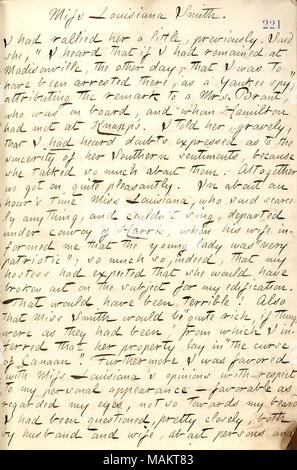 Miss Louisiana Smith.
221
I had rallied her a little, previously. Said
she, "I heard that if I had remained at
Madisonville, the other day, that I was to
have been arrested there, as a Yankee spy,"
attributing the remark to a Mrs. Brant
who was on board, and whom Hamilton
had met at Knapp's. I told her, gravely,
that I had heard doubts expressed as to the
sincerity of her Southern sentiments, because
she talked so much about them. Altogether
we got on quite pleasantly. In about an
hour's time Miss Louisiana, who said scarce-
ly anything, and couldn't sing, departed
under convoy of Harris, when his wife in-
formed me that the young lady was "very
patriotic"; so much so, indeed, that my
hostess had expected that she would have
broken out on the subject for my edification.
That would have been terrible! Also
that Miss Smith would be "quite rich, if things
were as they had been" from which I in-
ferred that her property lay in "the curse
of Canaan." Furthermore I was favored
with Miss Louisiana's opinions with respect
to my personal appearance — favorable as
regarded my eyes, not so towards my beard.
I had been questioned, pretty closely, both
by husband and wife, about persons and
alamy
Image ID: MAKT83
www.alamy.com